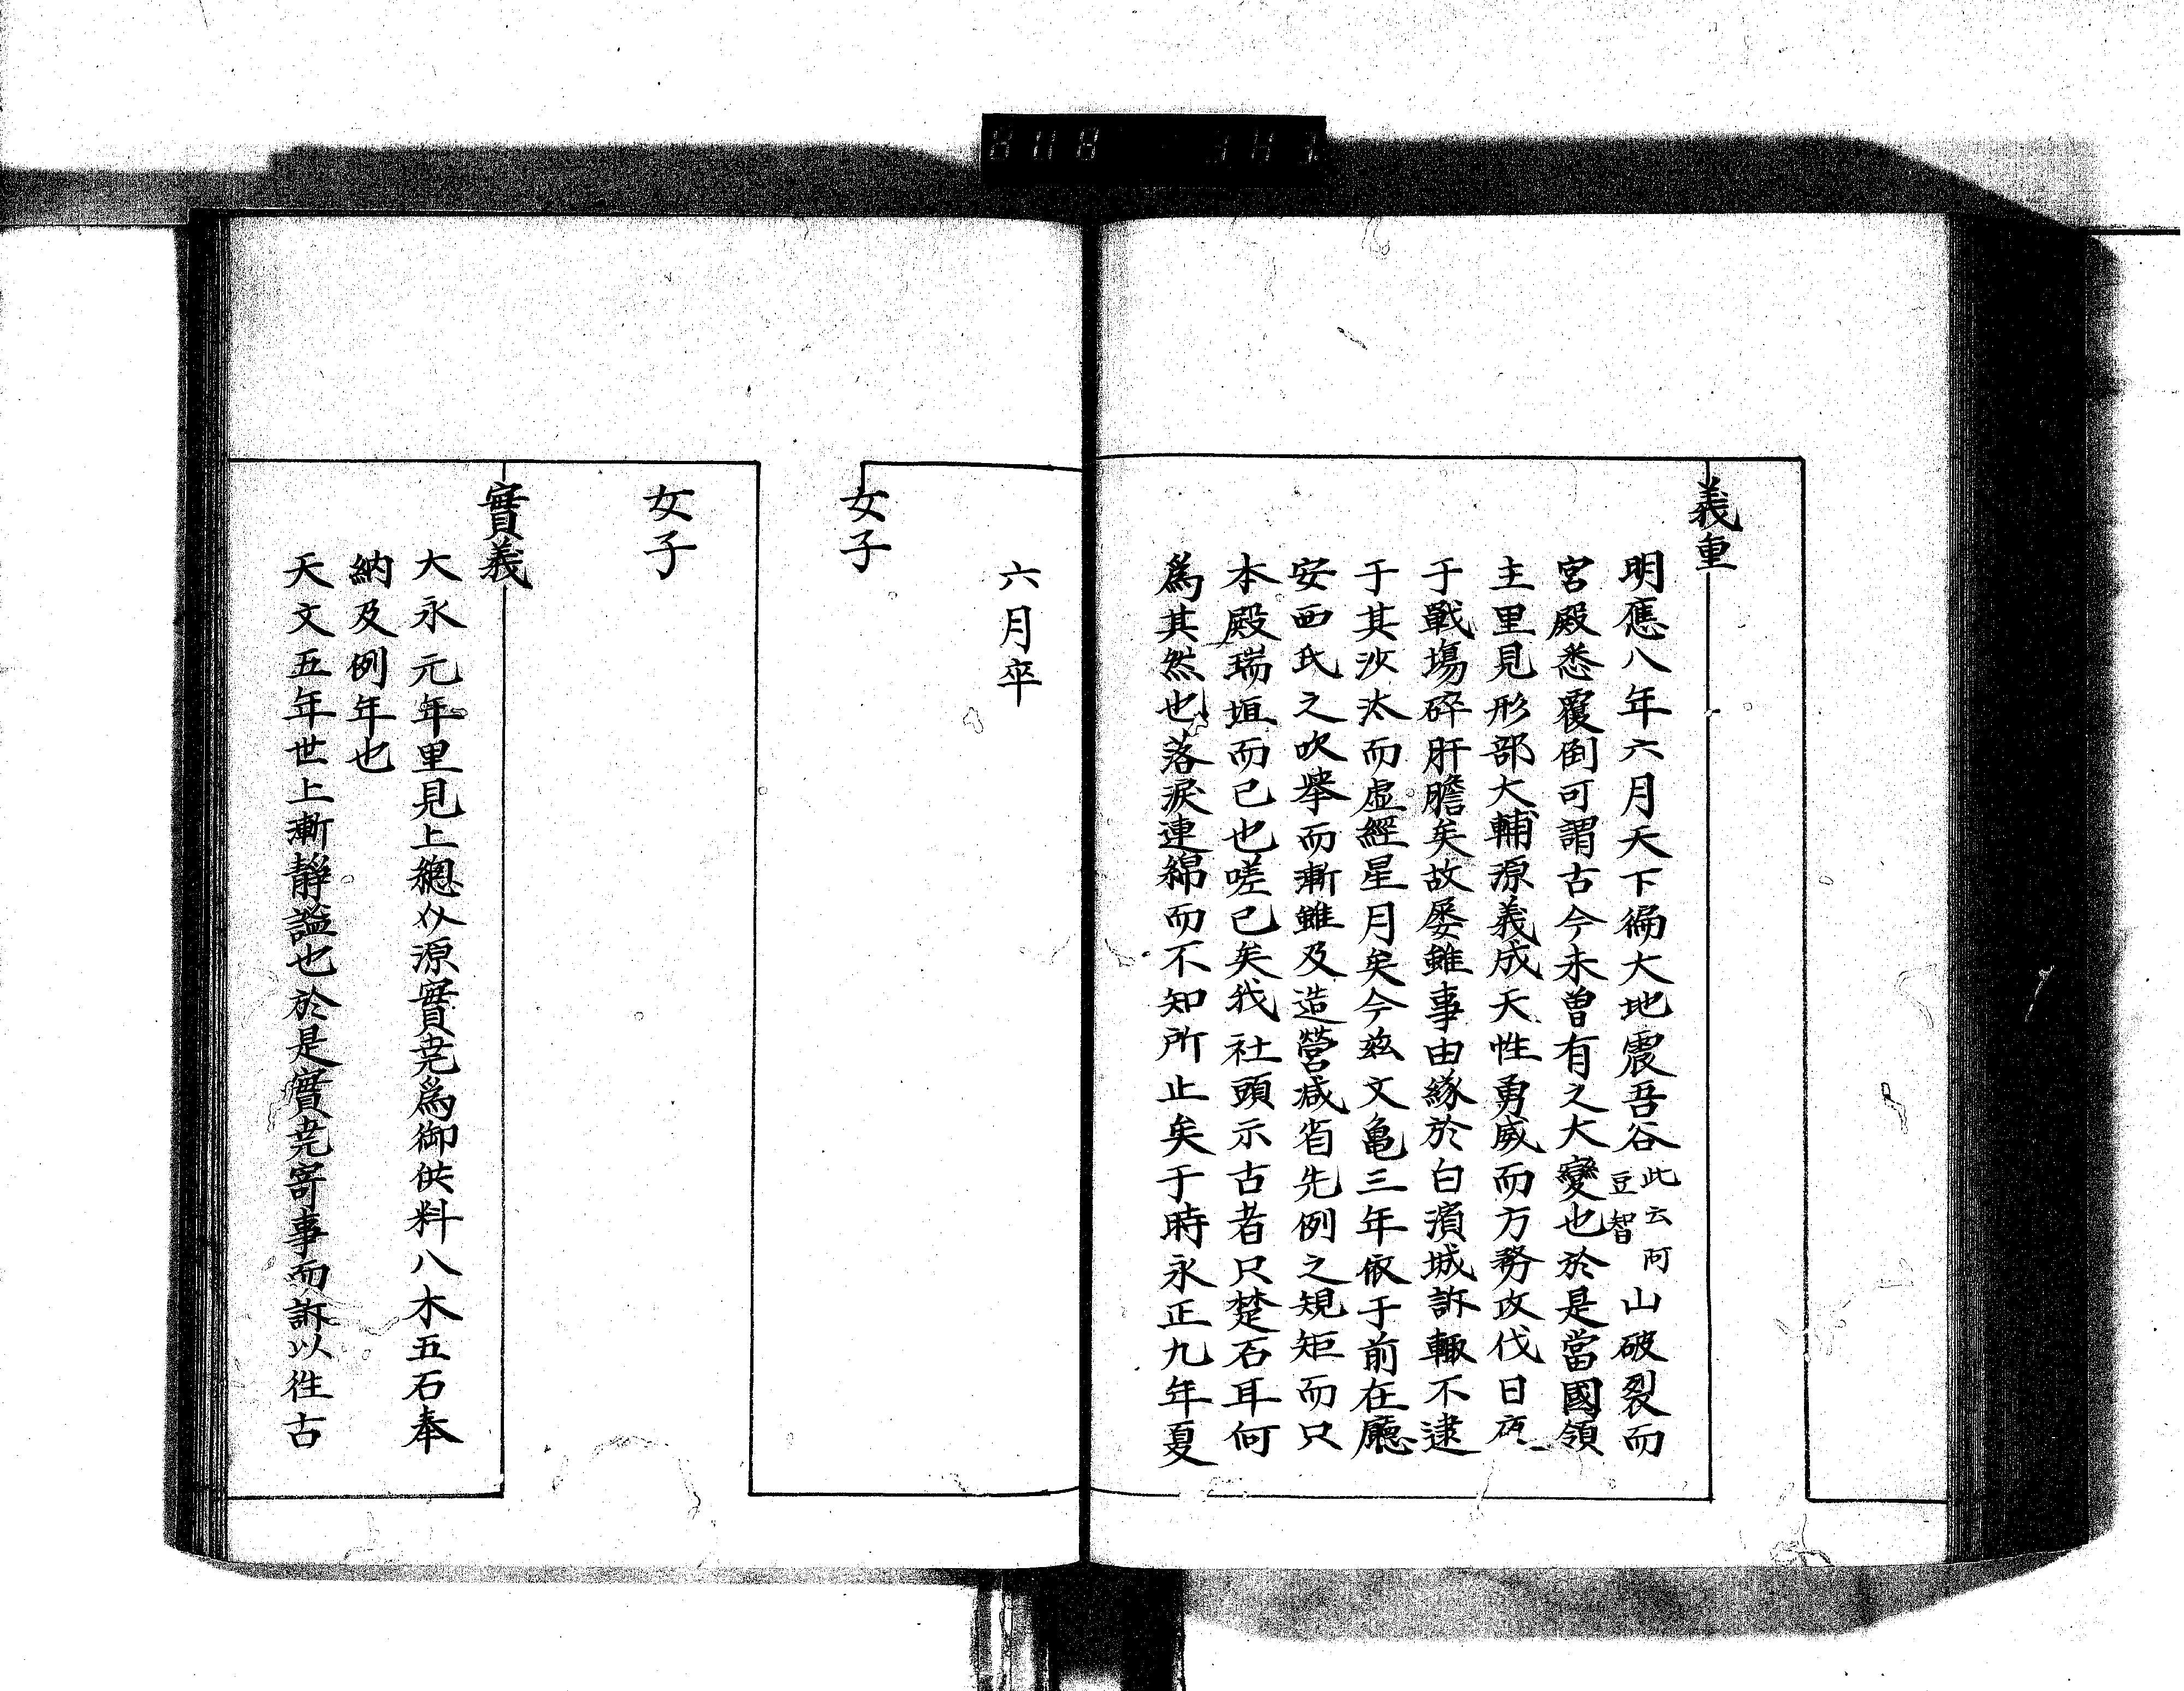 義重
明應八年六月天下徧大地震吾谷此云阿豆智山破裂而
宮殿悉覆倒可謂古今未曾有之大變也於是當國領
主里見形部大輔源義成天性勇威而方務攻伐日夜
于戰場碎肝膽矣故屡雖事由緣於白濱城訴輙不逮
于其沙汰而虛經星月矣今玆文亀三年依于前在廳
安西氏之吹擧而漸雖及造營减省先例之規矩而只
本殿瑞垣而已也嗟已矣我社頭示古者只楚石耳何
爲其然也落淚連綿而不知所止矣于時永正九年夏
六月卒
女子
女子
實義
大永元年里見上總介源實尭爲御供料八木五石奉
納及例年也
天文五年世上漸靜謐也於是實尭寄事而訴以徃古